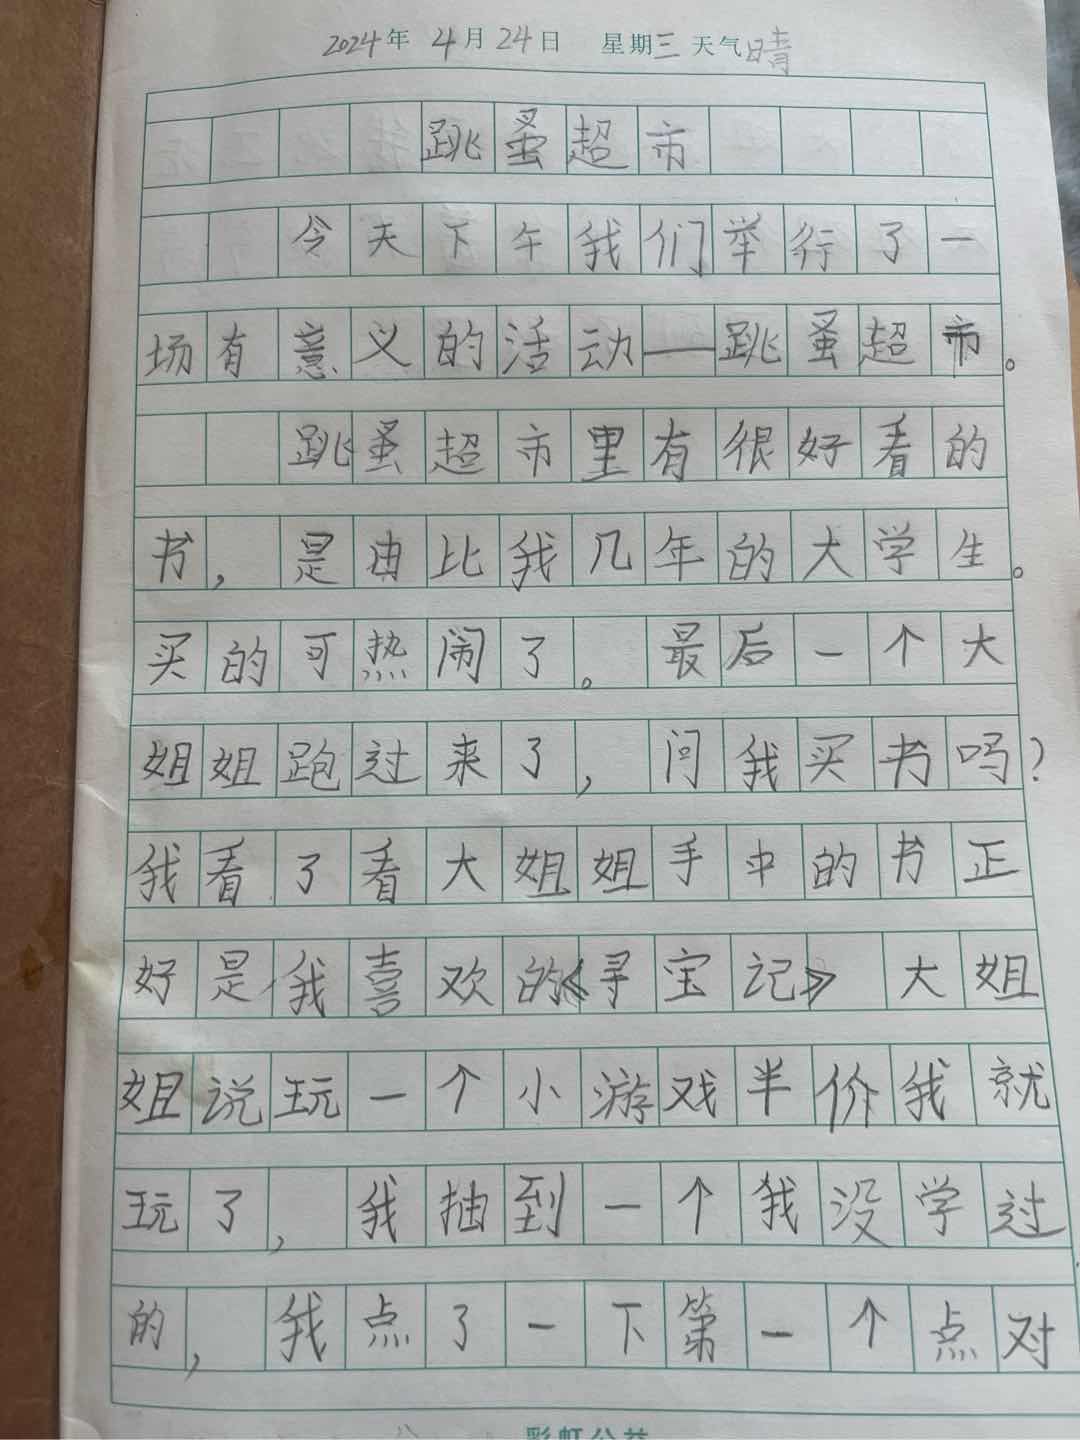 2024年 4月24日 星期三 天气晴
跳蚤超市
今天下午我们举行了一
场有意义的活动——跳蚤超市。
跳蚤超市里有很好看的
书，是由比我几年的大学生。
买的可热闹了。最后一个大
姐姐跑过来了，问我买书吗？
我看了看大姐姐手中的书正
好是我喜欢的《寻宝记》大姐
姐说玩一个小游戏半价我就
玩了，我抽到一个我没学过
的，我点了一下第一个点对
彩虹公益